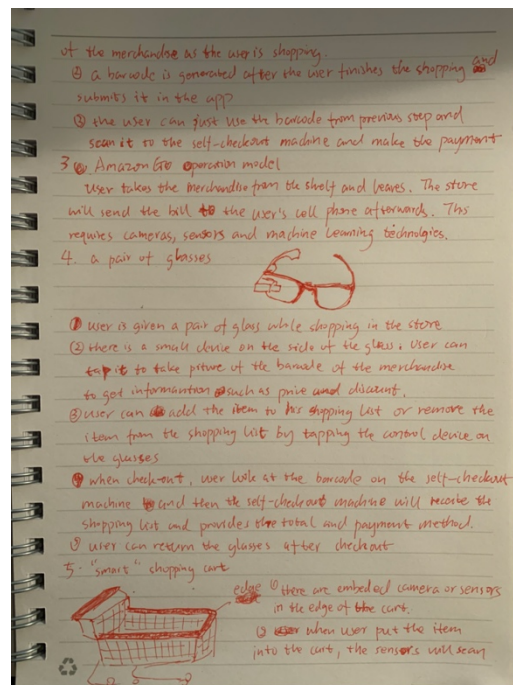 of the merchandise as the user is shopping.
② a barcode is generated after the user finishes the shopping and
submits it in the app
③ the user can just use the barcode from previous step and
scan it to the self-checkout machine and make the payment
3 Amazon Go operation model
User takes the merchandise from the shelf and leaves. The store
will send the bill to the user's cell phone afterwards. This
requires cameras, sensors and machine learning technologies.
4. a pair of glasses
① user is given a pair of glass while shopping in the store
② there is a small device on the side of the glass. User can
tap it to take piture of the barcode of the merchandise
to get informantion such as price and discount.
③ user can add the item to his shopping list or remove the
item from the shopping list by tapping the control device on
the glasses
④ when check-out, user look at the barcode on the self-checkout
machine and then the self-checkout machine will receive the
shopping list and provides the total and payment method.
⑤ user can return the glasses after checkout
5. "smart" shopping cart
edge ① there are embeded camera or sensors
in the edge of the cart.
② when user put the item
into the cart, the sensors will scan